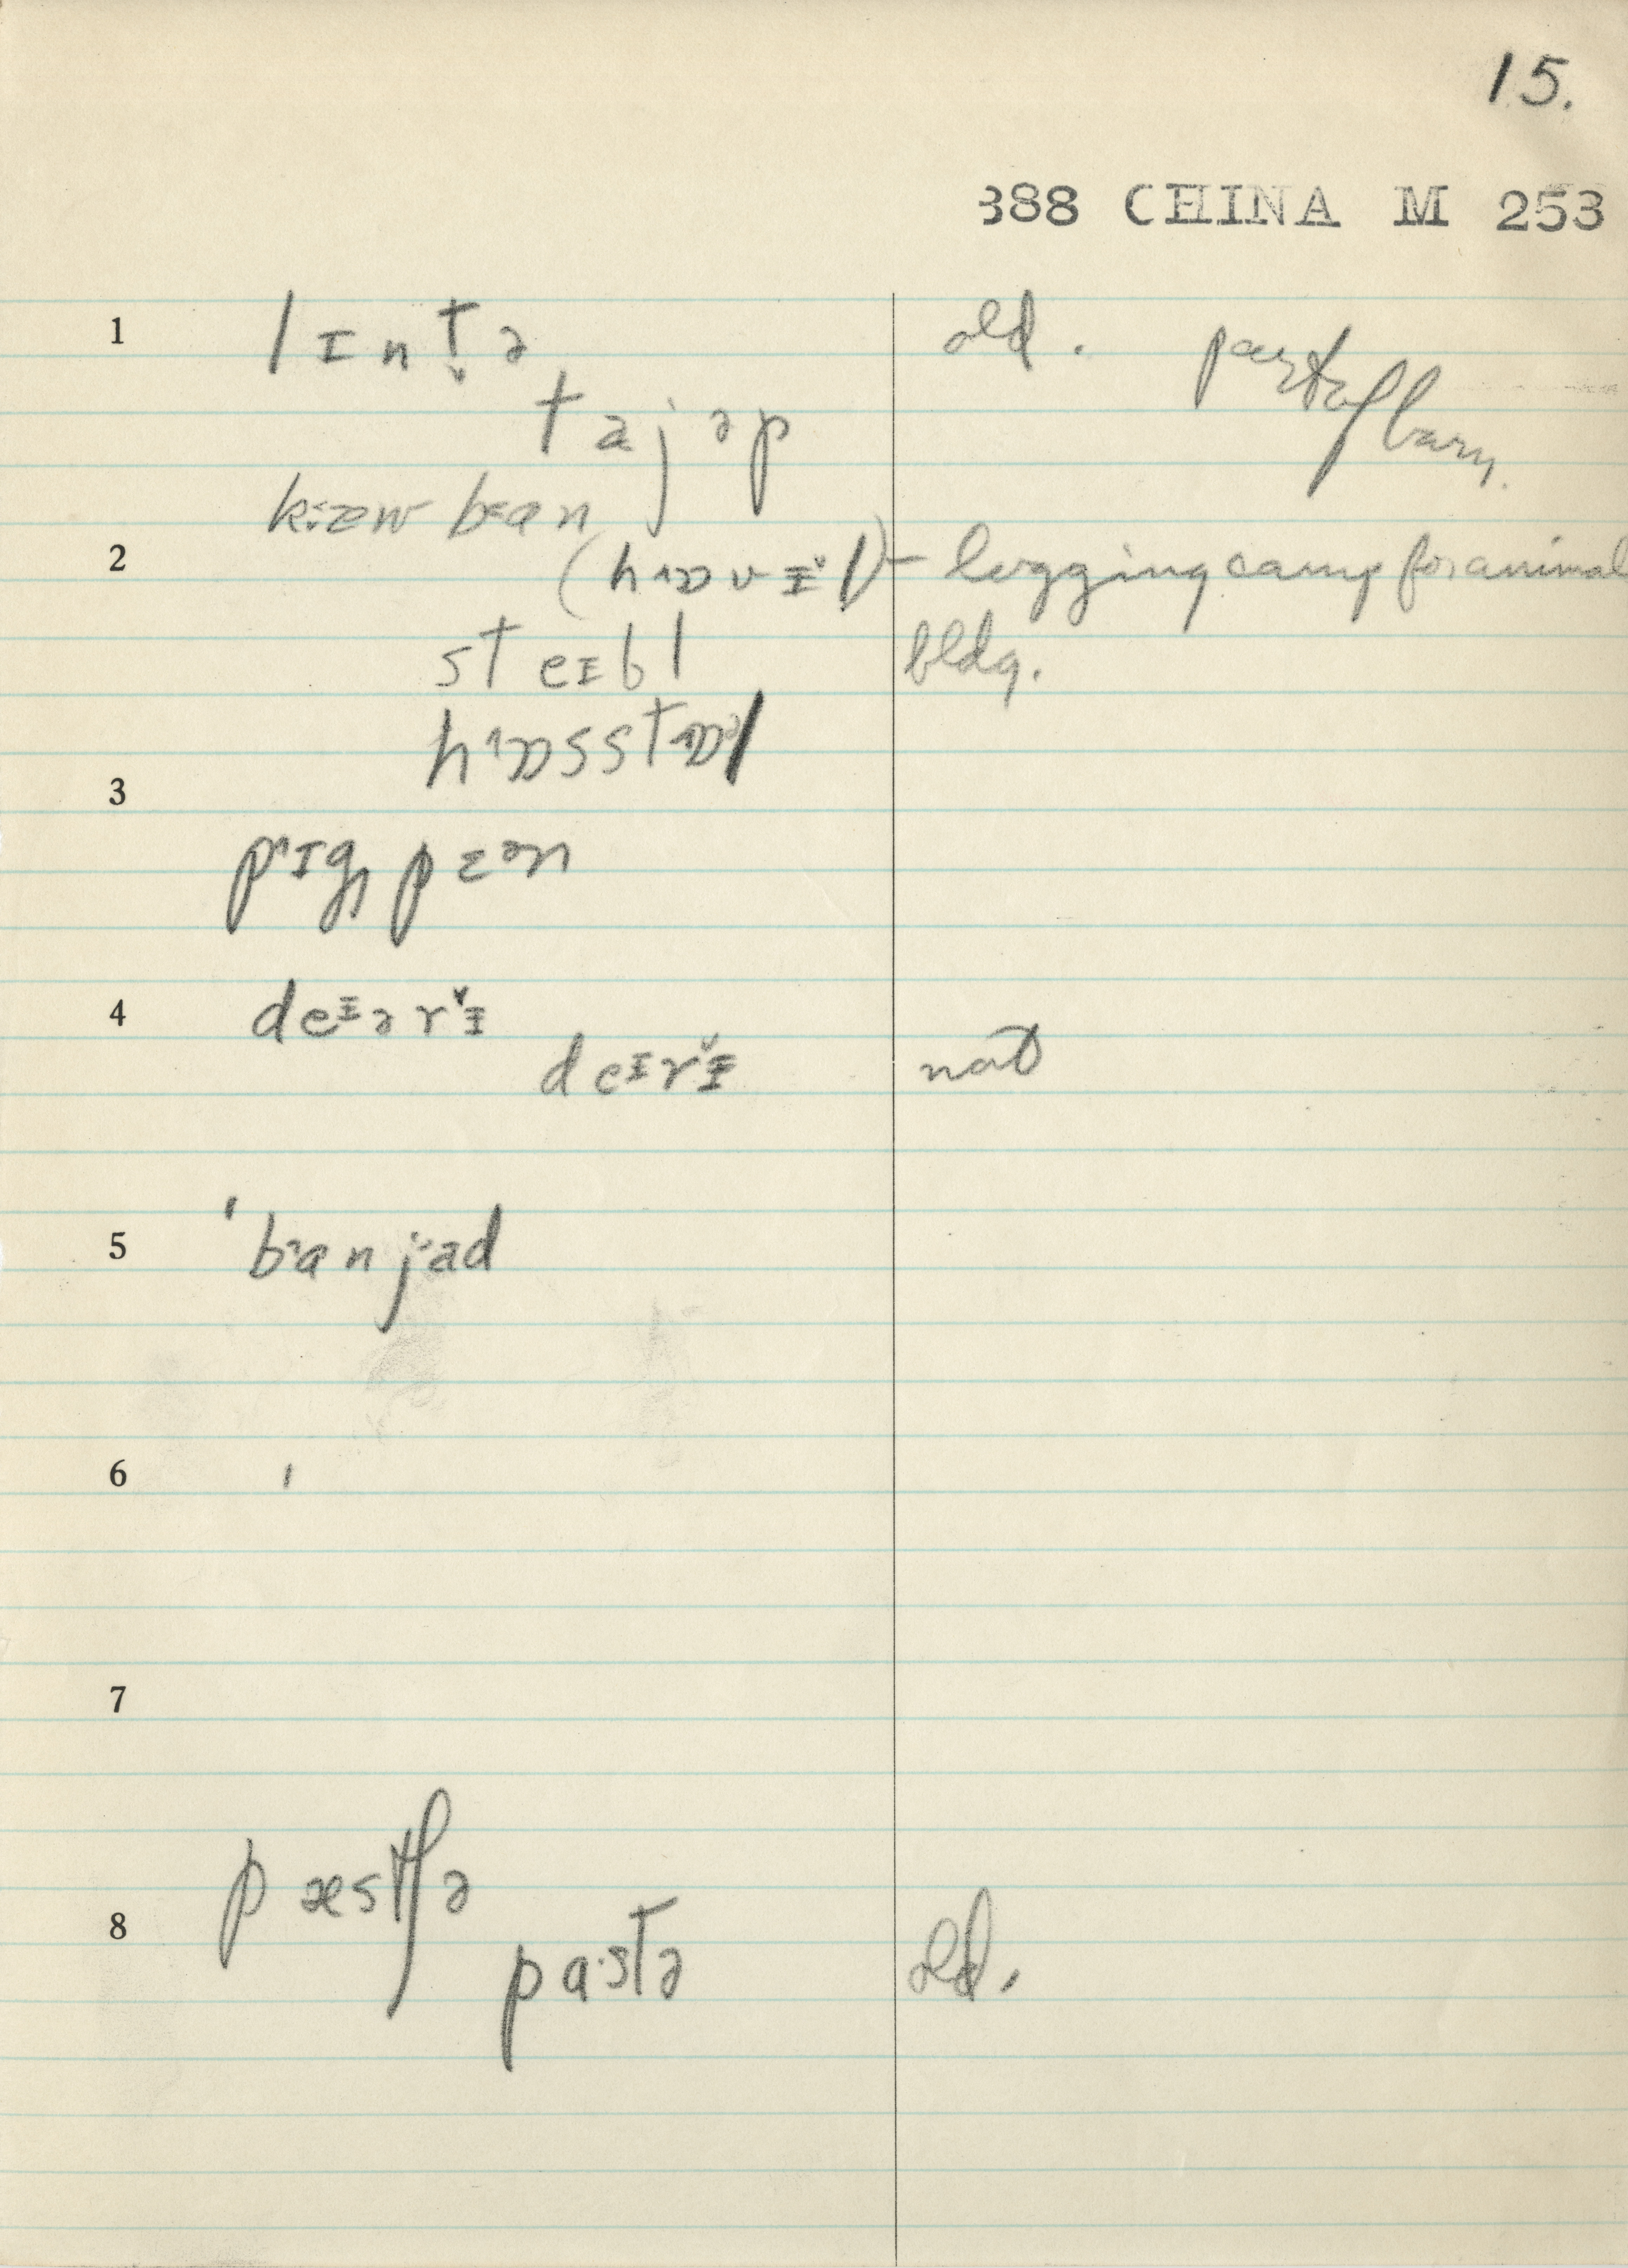 15.
388 CHINA M 253
1 lɪnt̬ə old. part of barn.
tajəp
kɛəw bɛan
2 (hɒvɪ̆l) – logging camp for animal
steɪbl bldg.
hɒsstɒl
3
pɪg pɛən
4 deɪərɪ̆
deɪrɪ̆ nat
5 'banjad
6
7
pæstʃə
8 pa·stə old.